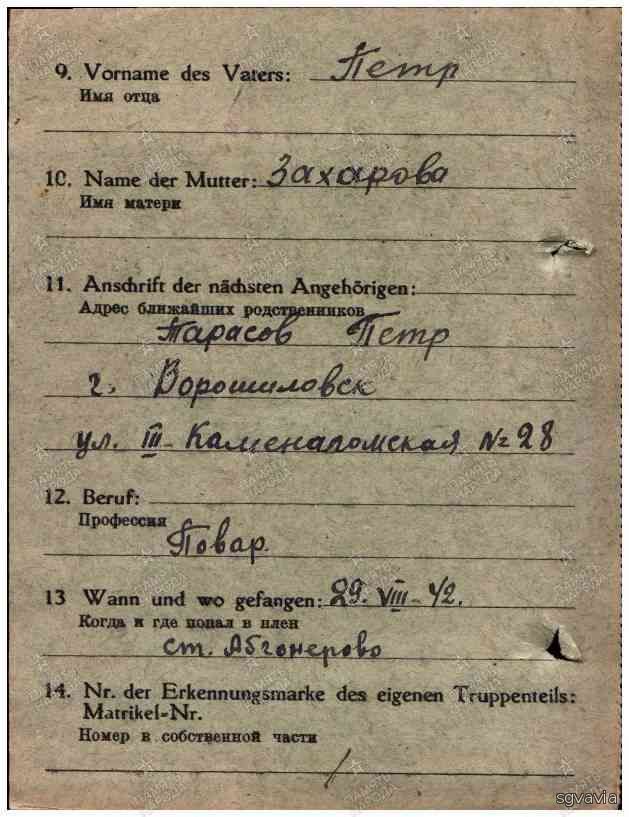 9. Vorname des Vaters: Петр
Имя отца
10. Name der Mutter: Захарова
Имя матери
11. Anschrift der nächsten Angehörigen:
Адрес ближайших родственников
Тарасов Петр
г. Ворошиловск
ул. III - Каменаломская № 28
12. Beruf:
Профессия
Повар.
13 Wann und wo gefangen: 29. VIII - 42.
Когда и где попал в плен
ст. Абгонерово
14. Nr. der Erkennungsmarke des eigenen Truppenteils:
Matrikel-Nr.
Номер в собственной части
sgvavia